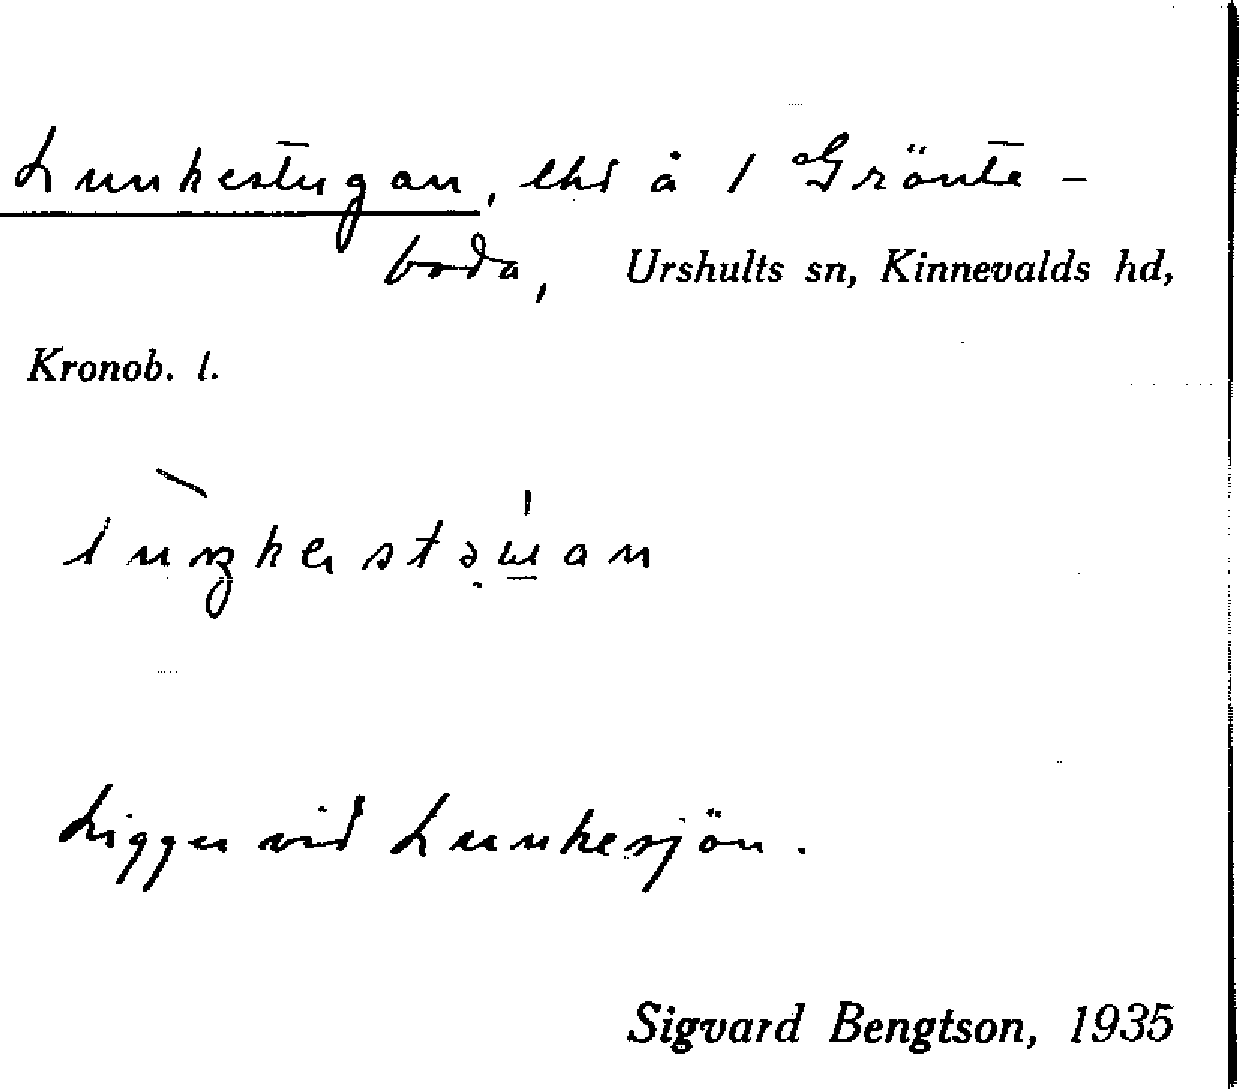 Lunkestugan, lhs å 1 Grönte-
boda, Urshults sn, Kinnevalds hd,
Kronob. l.
Ligger vid Lunkesjön.
Sigvard Bengtson, 1935